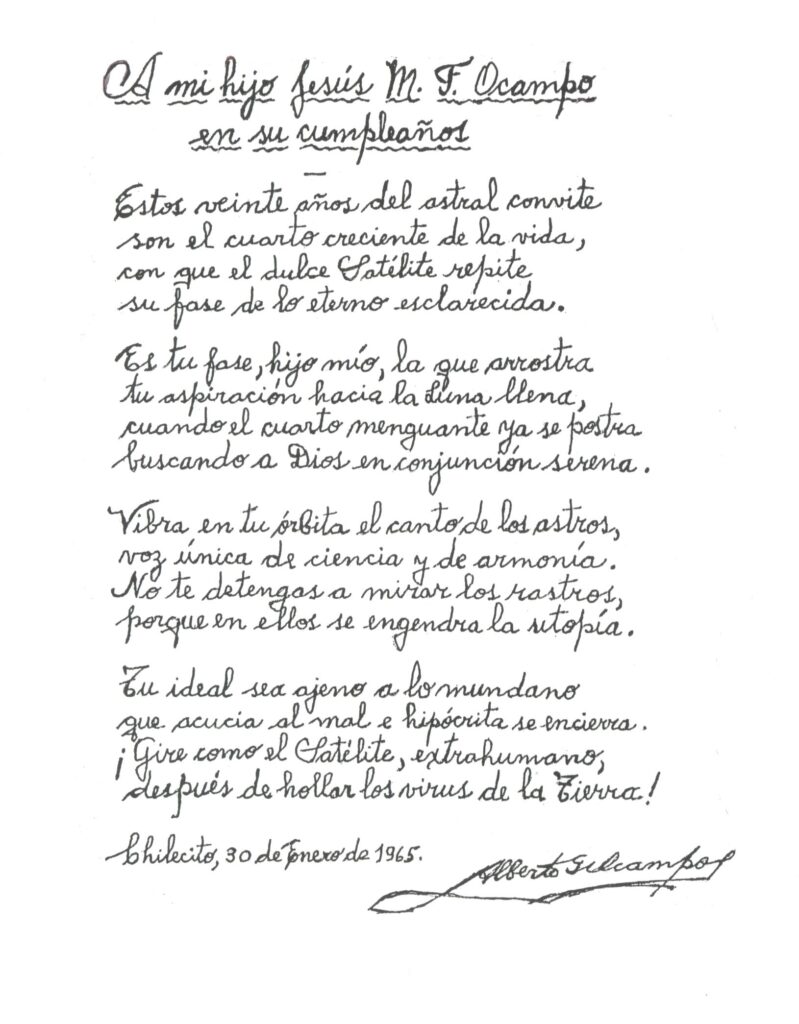 A mi hijo Jesús M. F. Ocampo
en su cumpleaños
Estos veinte años del astral convite
son el cuarto creciente de la vida,
con que el dulce Satélite repite
su fase de lo eterno esclarecida.
Es tu fase, hijo mío, la que arrostra
tu aspiración hacia la Luna llena,
cuando el cuarto menguante ya se postra
buscando a Dios en conjunción serena.
Vibra en tu órbita el canto de los astros,
voz única de ciencia y de armonía.
No te detengas a mirar los rastros,
porque en ellos se engendra la utopía.
Tu ideal sea ajeno a lo mundano
que acucia al mal e hipócrita se encierra.
¡Gire como el Satélite, extrahumano,
después de hollar los virus de la Tierra!
Chilecito, 30 de Enero de 1965.
Alberto